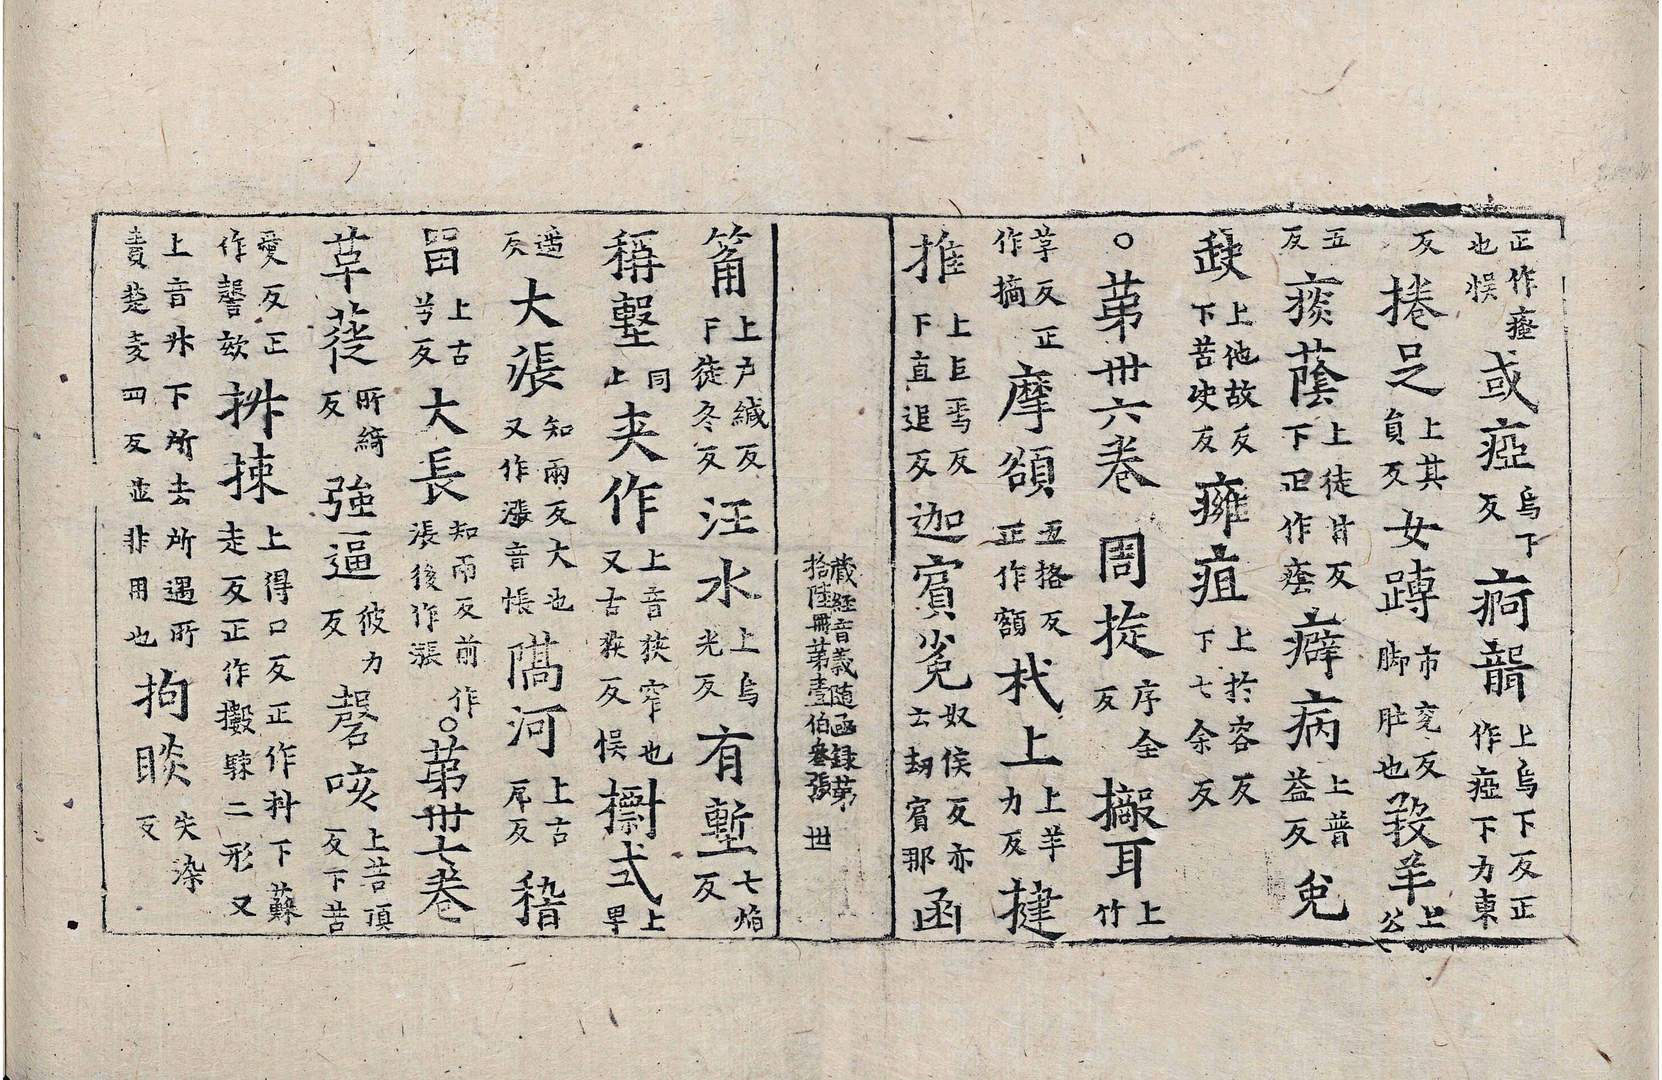 正作瘂也悮或瘂烏下反疴聾上烏下反正作瘂下力東
反捲足上其員反女蹲市兖反脚肚也羖羊上公
五反痰蔭上徒甘反下正作癊癖病上普益反兔
𡙇上他故反下苦决反癰疽上於容反下七余反
○第卅六卷周旋序全反撾耳上竹
莩反正作摘摩額五格反正作額杙上上羊力反揵
推上巨焉反下直追反迦賓㝹奴侯反亦云劫賓那函
藏經音義随函録第拾陸冊第壹伯叁張 世
筩上户緘反下徒冬反汪水上烏光反有塹七焰反
稱壍同上夾作上音狹窄也又古狹反悮𣝔式上畢
遥反大漲知兩反大也又作漲音帳隔河上古厈反稽
留上古兮反大長知兩反前作漲後作漲○第卅七卷
草蓰所綺反強逼彼力反磬咳上苦頂反下苦
愛反正作謦欬枓揀上得口反正作枓下蘇走反正作擻𩣷二形又
上音升下所去所遇所責楚麦四反並非用也拘睒失染反